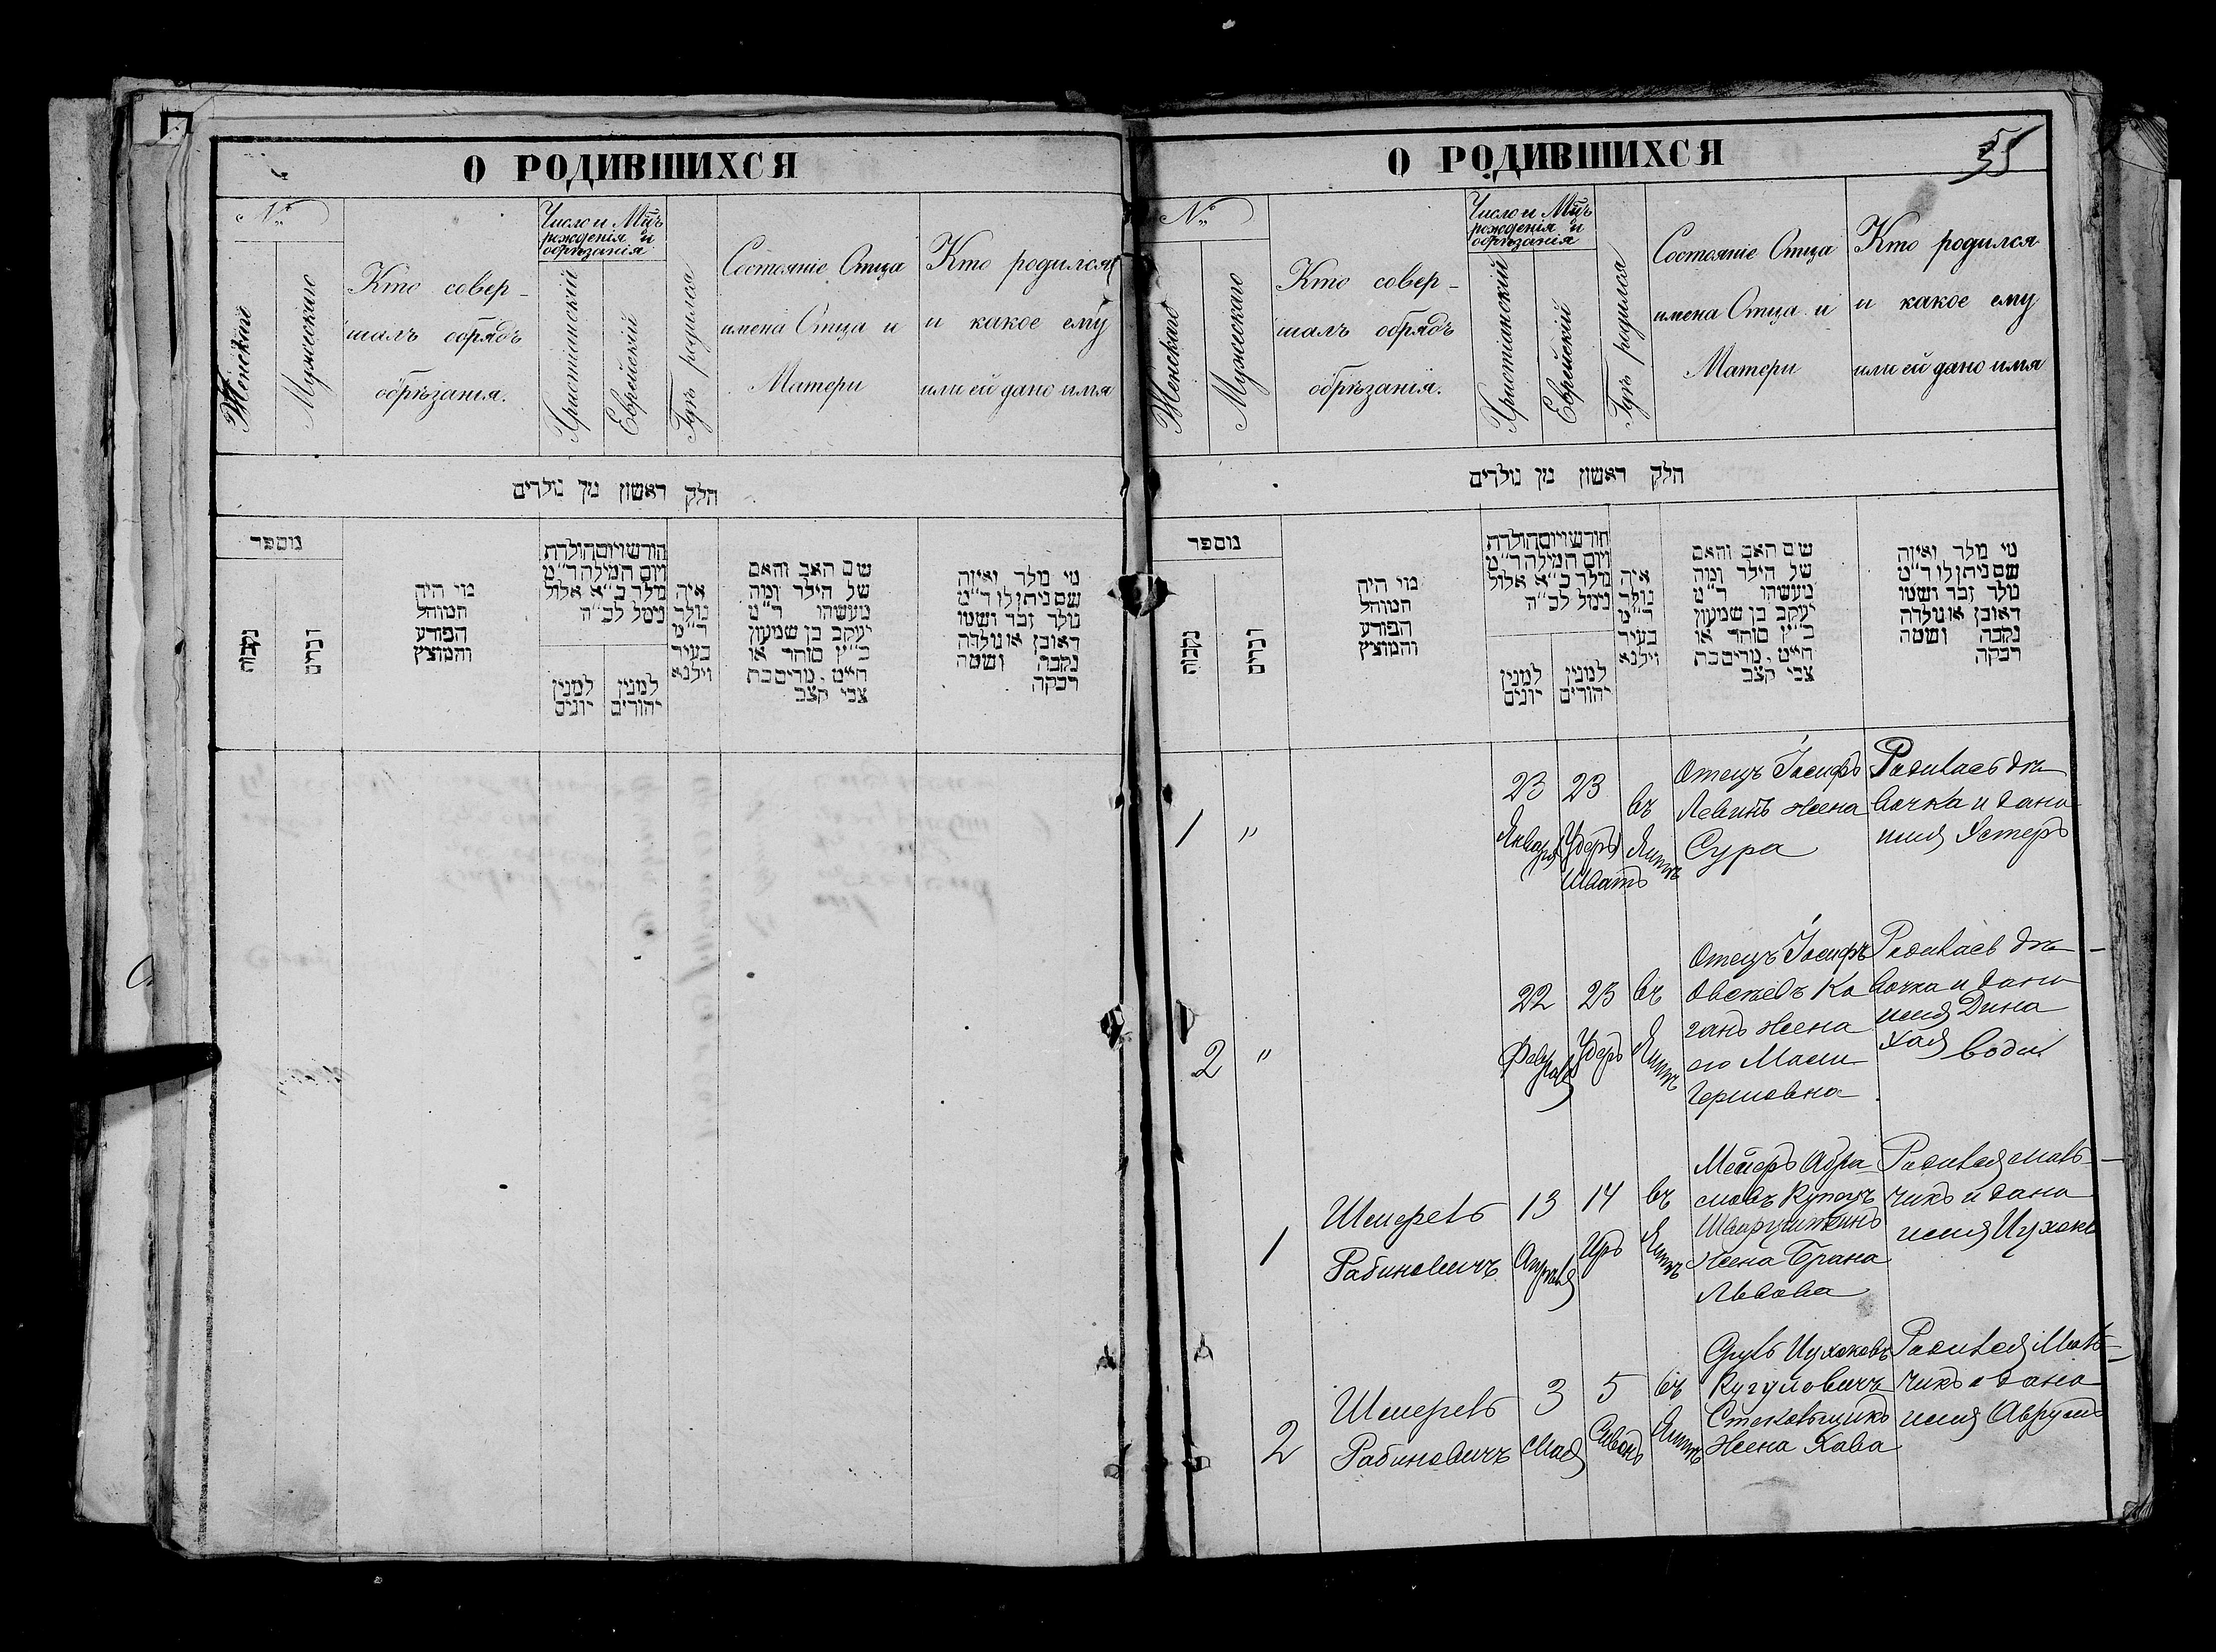 О РОДИВШИХСЯ
№
Женскаго
Мужескаго
Кто совер-
шалъ обрядъ
обрѣзанія.
Число и Мц̃ъ
рожденія и
обрѣзанія
Христіанскій
Еврейскій
Гдѣ родился
Состояніе Отца
имена Отца и
Матери
Кто родился
и какое ему
или ей дано имя
חלק ראשון מן נולדים
מוספר
נקבות
זכרים
מי היה
המוהל
הפורע
והמוצץ
חודש ויום הולדת
ויום המילה ד״מ
נולד כ״א אלול
נימל לב״ה
למנין
יונים
למנין
יהודים
איה
נולד
ד״מ
בעיר
וילנא
שם האב והאם
של הילד ומה
מעשהו ד״מ
יעקב בן שמעון
כ״ץ סוחר או
חייט. מרים בת
צבי קצב
מי נולד ואיזה
שם ניתן לו ד״מ
נולד זכר ושמו
ראובן או נולדה
נקבה ושמה
רבקה
О РОДИВШИХСЯ
55
№
Женскаго
Мужескаго
Кто совер-
шалъ обрядъ
обрѣзанія.
Число и Мц̃ъ
рожденія и
обрѣзанія
Христіанскій
Еврейскій
Гдѣ родился
Состояніе Отца
имена Отца и
Матери
Кто родился
и какое ему
или ей дано имя
חלק ראשון מן נולדים
מוספר
נקבות
זכרים
מי היה
המוהל
הפורע
והמוצץ
חודש ויום הולדת
ויום המילה ד״מ
נולד כ״א אלול
נימל לב״ה
למנין
יונים
למנין
יהודים
איה
נולד
ד״מ
בעיר
וילנא
שם האב והאם
של הילד ומה
מעשהו ד״מ
יעקב בן שמעון
כ״ץ סוחר או
חייט. מרים בת
צבי קצב
מי נולד ואיזה
שם ניתן לו ד״מ
נולד זכר ושמו
ראובן או נולדה
נקבה ושמה
רבקה
1 "
23
Января
23
Шватъ
въ
Ялтѣ
Отецъ Іосифъ
Левинъ жена
Сура
Родилась дѣ
вочка и дано
имя Эстеръ
2 "
22
Февраля
23
Удеръ
въ
Ялтѣ
Отецъ Іосифъ
Ка
ганъ жена
его
Гершовна
Родилась дѣ
вочка и дано
имя Дина
Хая
1
Шмерель
Рабиновичъ
13
Апреля
14
Иръ
въ
Ялтѣ
Мейеръ Абра
мовъ Купецъ
жена Брана
Львова
Родился маль-
чикъ и дано
имя Ицхокъ
2
Шмерель
Рабиновичъ
3
Мая
5
Сивонъ
въ
Ялтѣ
Сруль Ицхоковъ
Стекольщикъ
жена Хава
Родился маль-
чикъ и дано
имя Аврумъ